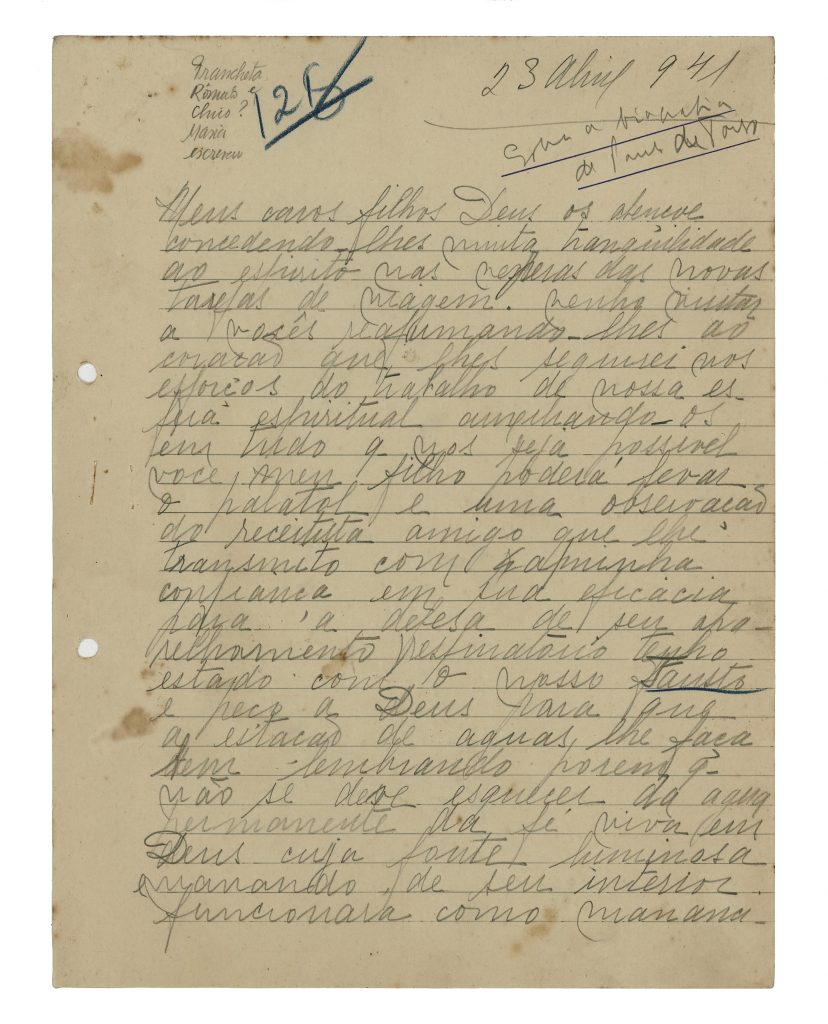 Prancheta
Rômulo e
Chico ?
Maria
escreveu
125
23 Abril 941
Sobre a biografia
de Paulo de Tarso
Meus caros filhos Deus os abencoe
concedendo-lhes muita tranquilidade
ao espirito nas vesperas das novas
tarefas de viagem. Venho visitar
a vocês reafirmando-lhes ao
coracaõ que lhes seguirei nos
esforços do trabalho de nossa es-
fera espiritual auxiliando-os
em tudo q nos seja possivel
voce meu filho poderá levar
o palatol e uma observacaõ
do receitista amigo que lhe
transmito com minha
confianca em sua eficácia
para a defesa de seu apa-
relhamento respiratorio tenho
estado com o nosso Fausto
e peco a Deus para que
a estacaõ de aguas lhe faca
bem lembrando porem q
não se deve esquecer da agua
permanente da fé viva em
Deus cuja fonte luminosa
emanando de seu interior
funcionara como manana-